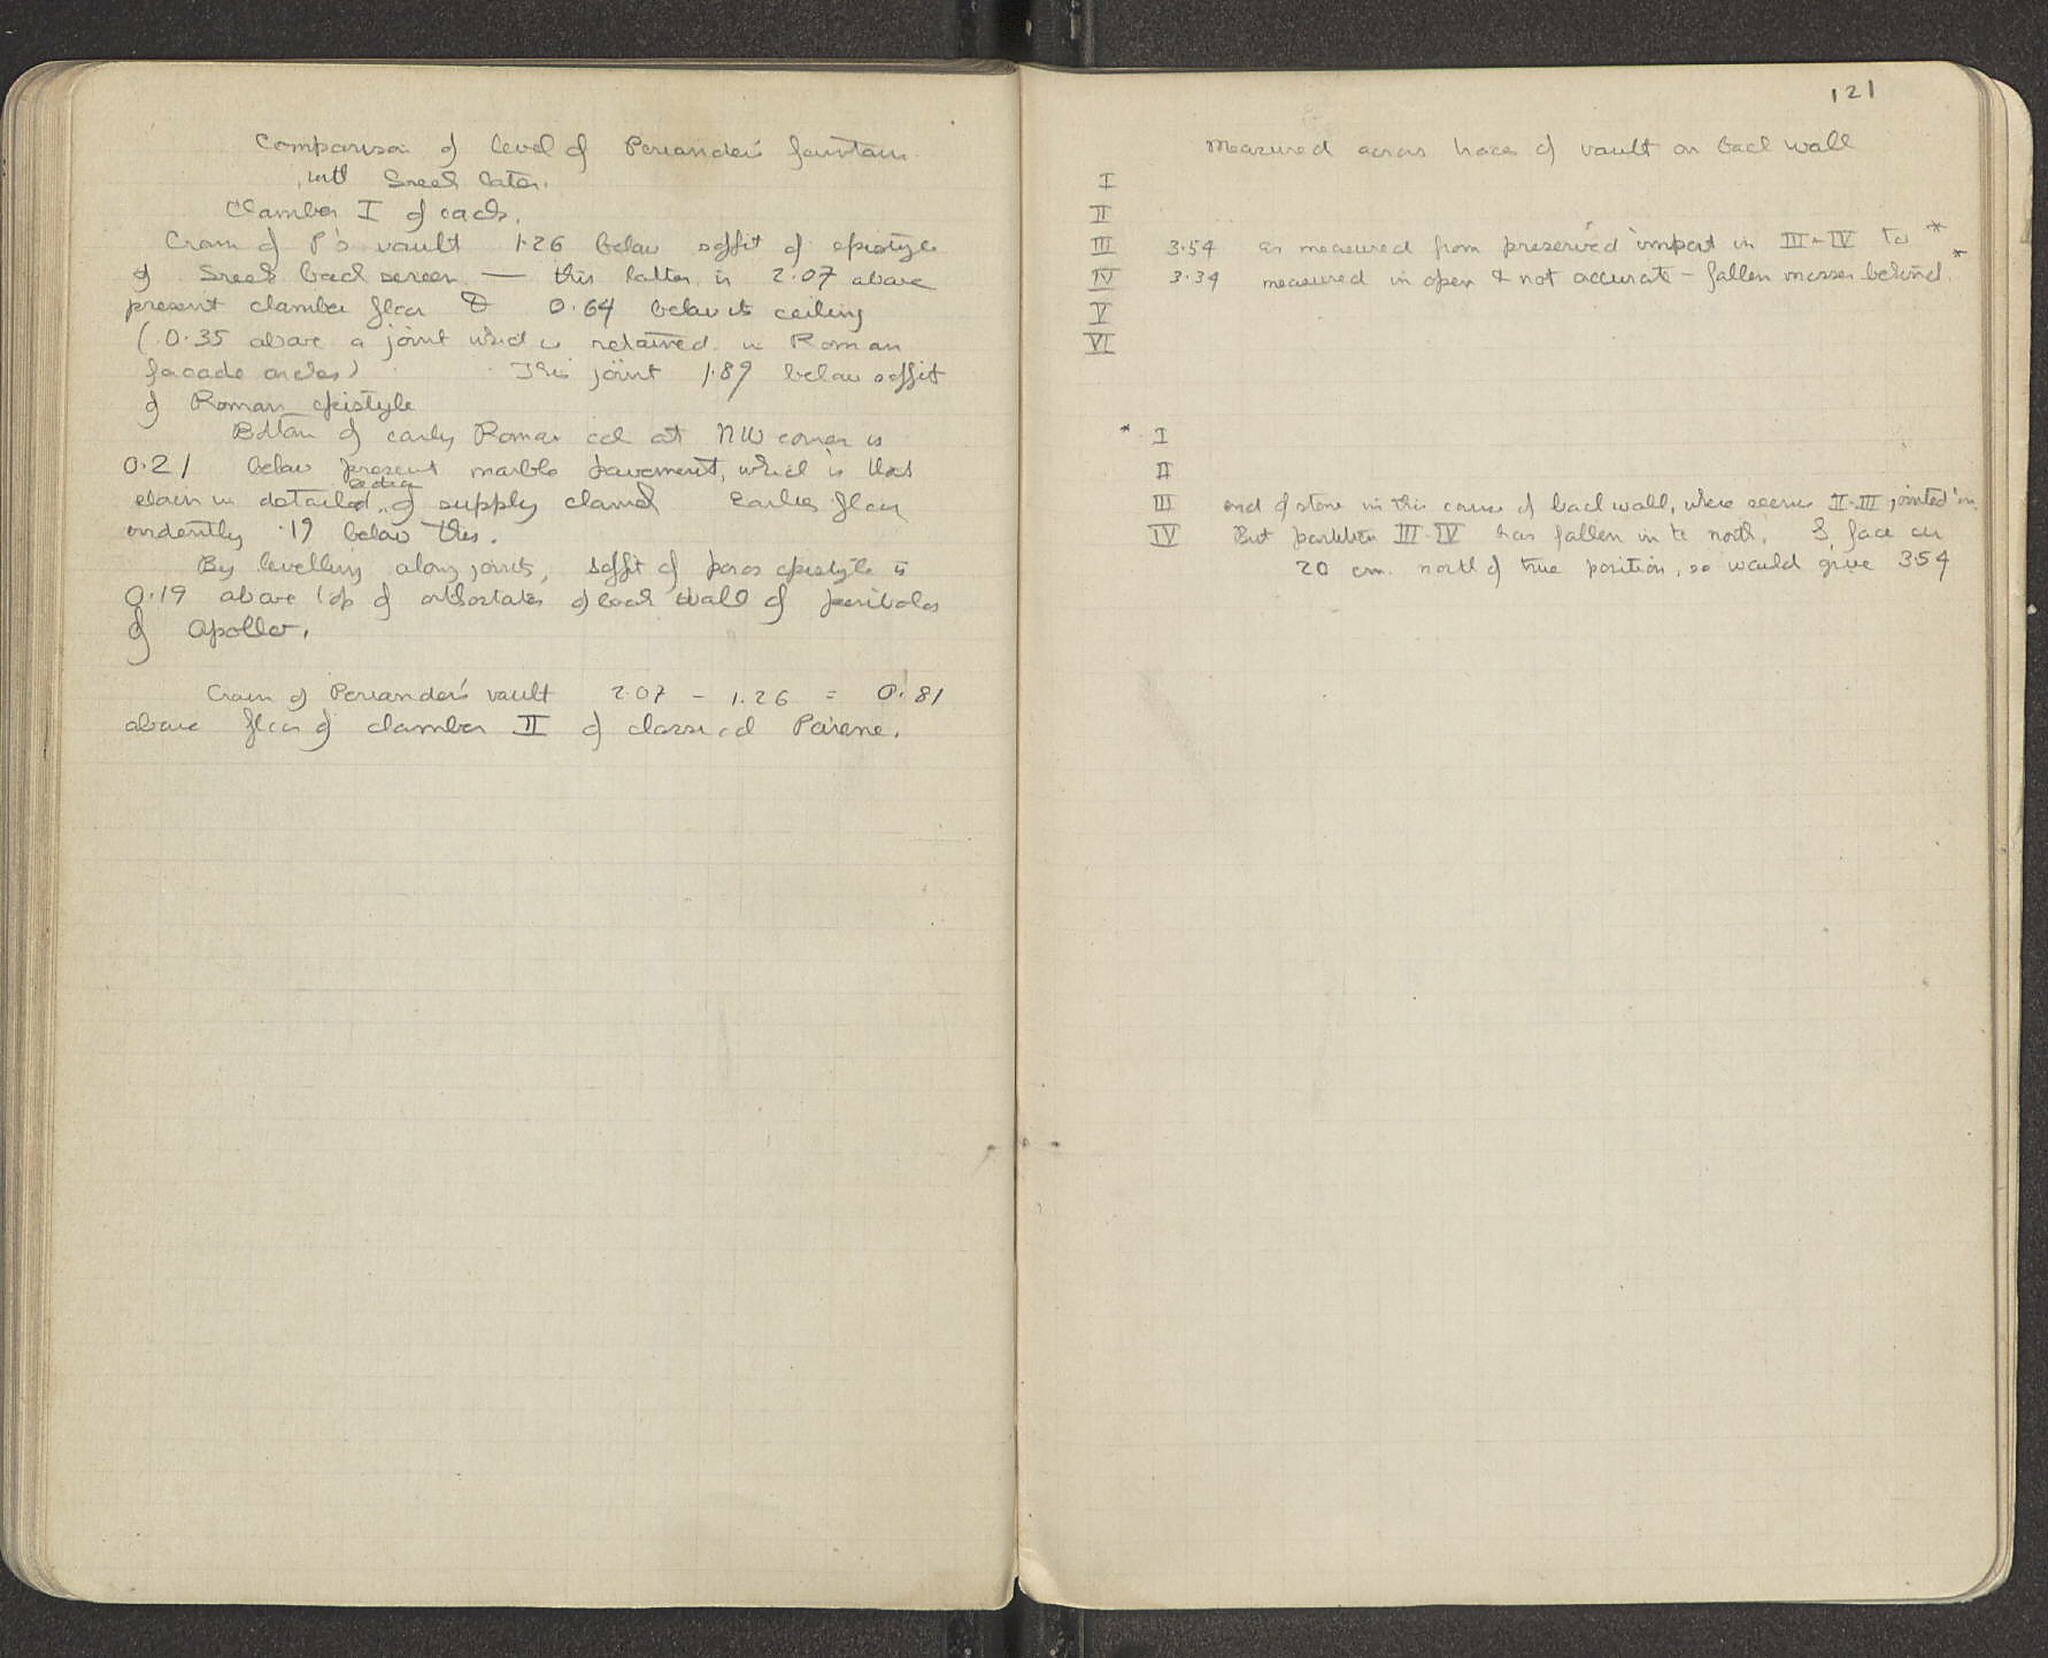 Comparison of level of Periander's fountain
with Greek later.
Chamber I of each.
Crown of P's vault 1.26 below soffit of epistyle
of Greek back screen — this latter is 2.07 above
present chamber floor & 0.64 below its ceiling
(0.35 above a joint which is retained in Roman
facade arches) This joint 1.89 below soffit
of Roman epistyle
Bottom of early Roman col at NW corner is
0.21 below present marble pavement, which is that
down in detailed section of supply channel Earlier floor
evidently .19 below this.
By levelling along joints, soffit of poros epistyle is
0.19 above top of orthostates of back wall of peribolos
of Apollo.
Crown of Periander's vault 2.07 - 1.26 = 0.81
above floor of chamber II of classical Peirene.
121
Measured across traces of vault on back wall
I
II
III 3.54 as measured from preserved impost in III-IV to *
IV 3.34 measured in open & not accurate - fallen masses behind. *
V
VI
* I
II
III end of stone in this course of back wall, where seems II-III jointed in.
IV But partition III-IV has fallen in to north. S. face
20 cm. north of true position, so would give 3.54